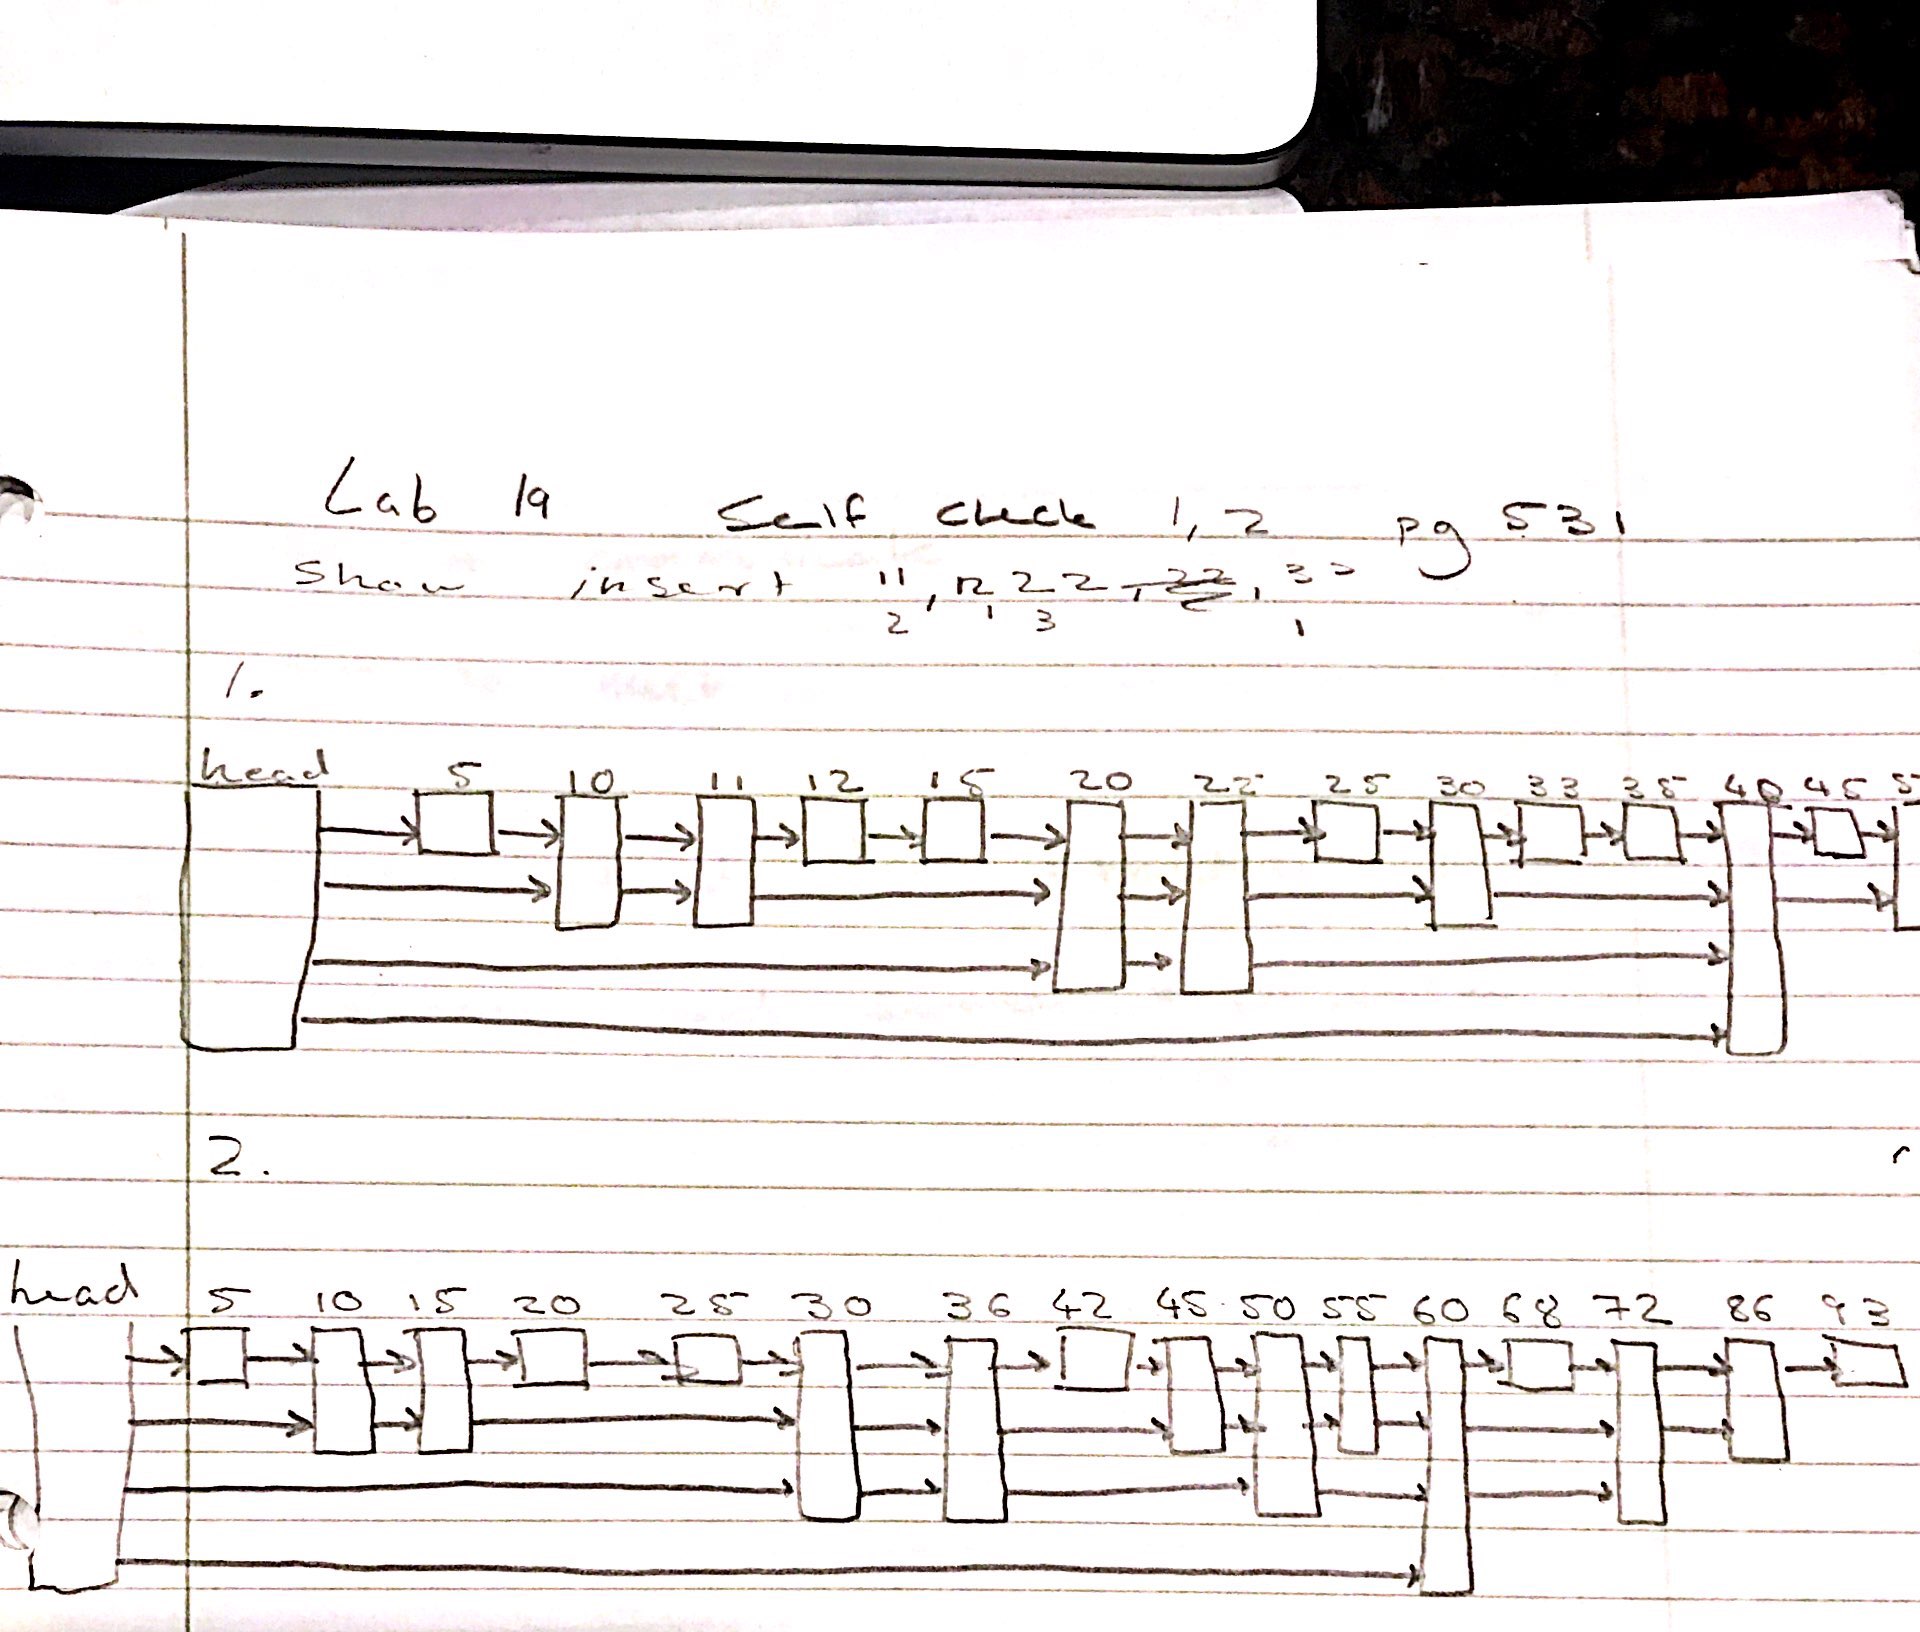 Lab 19 Self Check 1, 2 pg 531
Show insert 11, 12 22, 22, 33
2 1 3 1
1.
head 5 10 11 12 15 20 22 25 30 33 35 40 45
2.
head 5 10 15 20 25 30 36 42 45 50 55 60 68 72 86 93